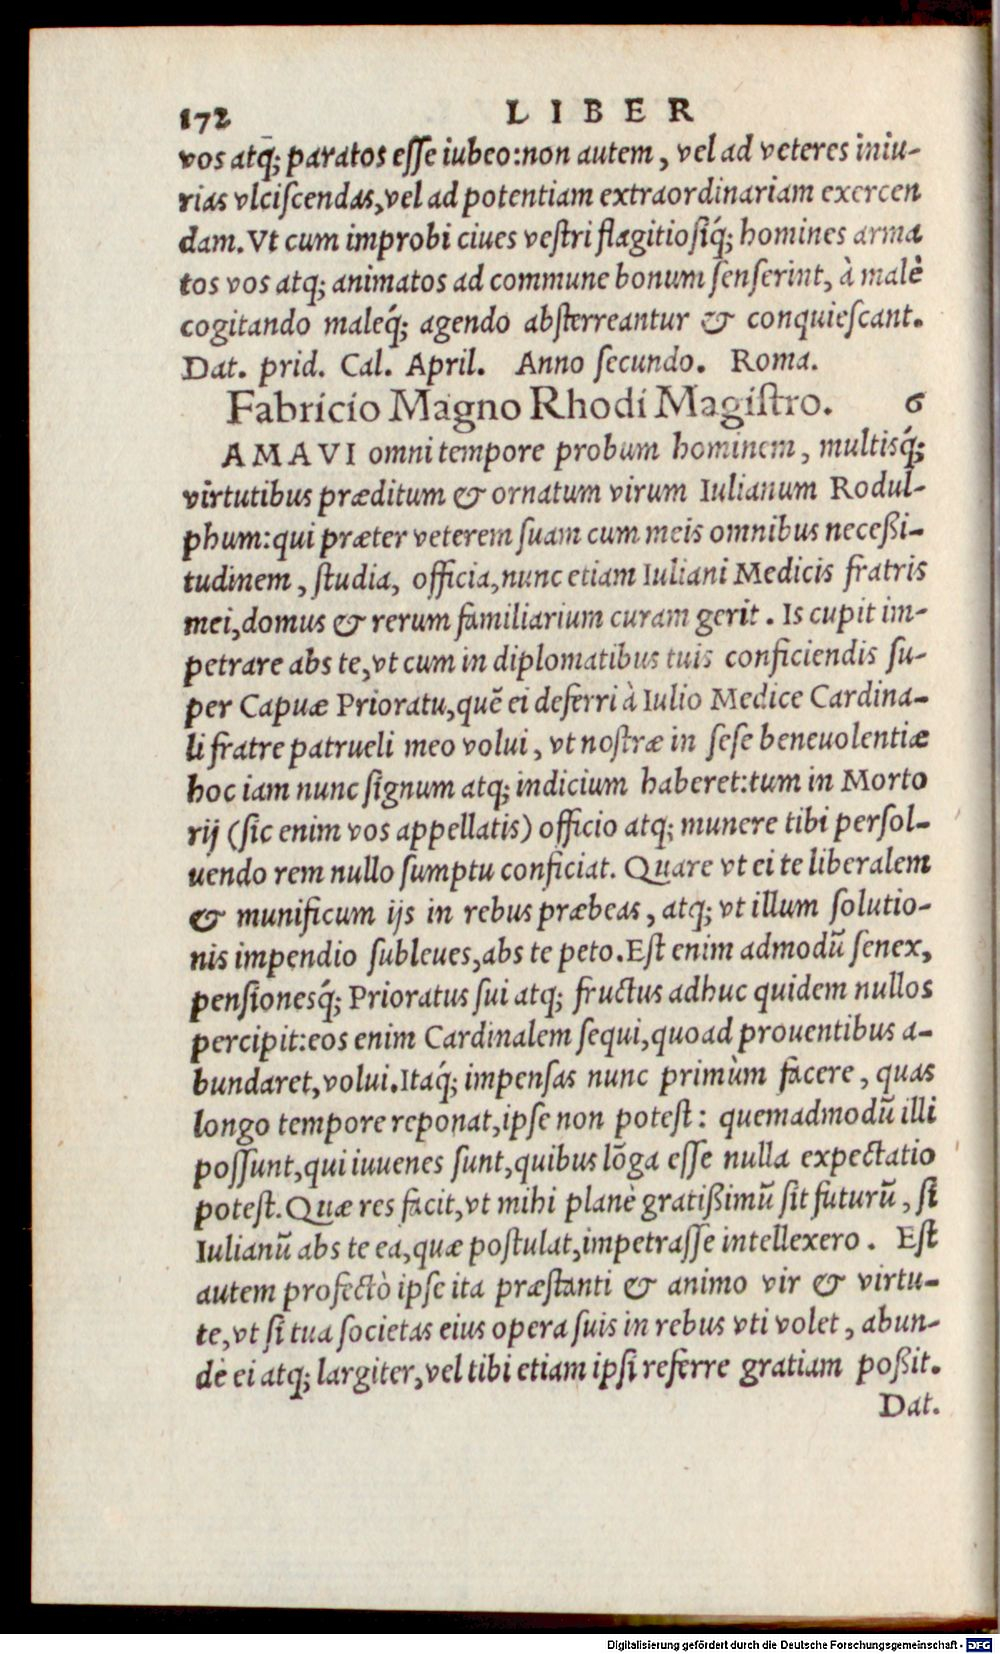 172 LIBER
vos atq̃; paratos esse iubeo:non autem, vel ad veteres iniu-
rias vlciscendas,vel ad potentiam extraordinariam exercen
dam. Vt cum improbi ciues vestri flagitiosiq́; homines arma
tos vos atq; animatos ad commune bonum senserint, à malè
cogitando maleq́; agendo absterreantur & conquiescant.
Dat. prid. Cal. April. Anno secundo. Roma.
Fabricio Magno Rhodi Magistro. 6
AMAVI omni tempore probum hominem, multisq́;
virtutibus præditum & ornatum virum Iulianum Rodul-
phum:qui præter veterem suam cum meis omnibus neceßi-
tudinem, studia, officia,nunc etiam Iuliani Medicis fratris
mei,domus & rerum familiarium curam gerit. Is cupit im-
petrare abs te,vt cum in diplomatibus tuis conficiendis su-
per Capuæ Prioratu,quẽ ei deferri à Iulio Medice Cardina-
li fratre patrueli meo volui, vt nostræ in sese beneuolentiæ
hoc iam nunc signum atq; indicium haberet:tum in Morto
rij (sic enim vos appellatis) officio atq; munere tibi persol-
uendo rem nullo sumptu conficiat. Quare vt ei te liberalem
& munificum ijs in rebus præbeas, atq; vt illum solutio-
nis impendio subleues,abs te peto. Est enim admodũ senex,
pensionesq́; Prioratus sui atq; fructus adhuc quidem nullos
percipit:eos enim Cardinalem sequi,quoad prouentibus a-
bundaret,volui. Itaq́; impensas nunc primùm facere, quas
longo tempore reponat,ipse non potest: quemadmodũ illi
possunt,qui iuuenes sunt,quibus lõga esse nulla expectatio
potest. Quæ res facit,vt mihi planè gratißimũ sit futurũ, si
Iulianũ abs te ea,quæ postulat,impetrasse intellexero. Est
autem profectò ipse ita præstanti & animo vir & virtu-
te,vt si tua societas eius opera suis in rebus vti volet, abun-
dè ei atq; largiter,vel tibi etiam ipsi referre gratiam poßit.
Dat.
Digitalisierung gefördert durch die Deutsche Forschungsgemeinschaft - DFG